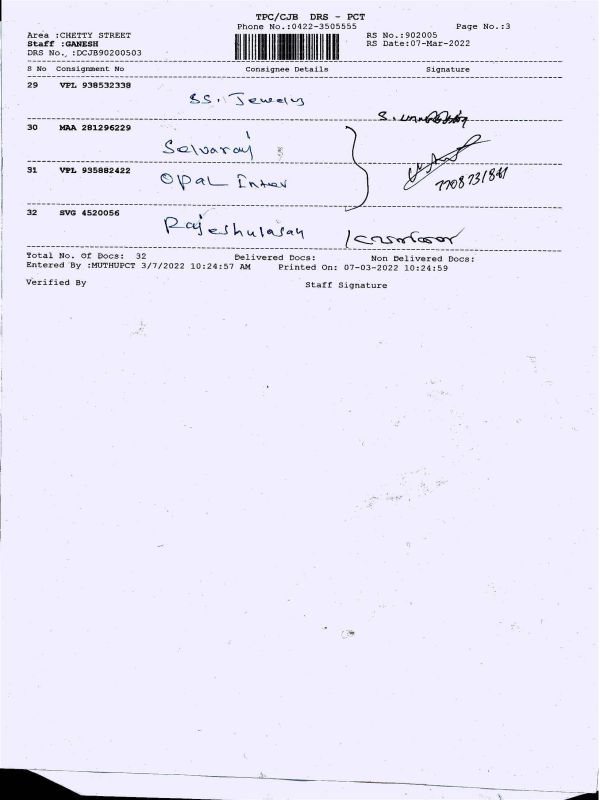 TPC/CJB DRS - PCT
Phone No.:0422-3505555 Page No.:3
Area :CHETTY STREET RS No.:902005
Staff :GANESH RS Date:07-Mar-2022
DRS No., :DCJB90200503
S No Consignment No Consignee Details Signature
29 VPL 938532338
SS. Jewelys
30 MAA 281296229
Selvaraj
31 VPL 935882422
Opal Inter
7708731841
32 SVG 4520056
Total No. Of Docs: 32 Delivered Docs: Non Delivered Docs:
Entered By :MUTHUPCT 3/7/2022 10:24:57 AM Printed On: 07-03-2022 10:24:59
Verified By Staff Signature